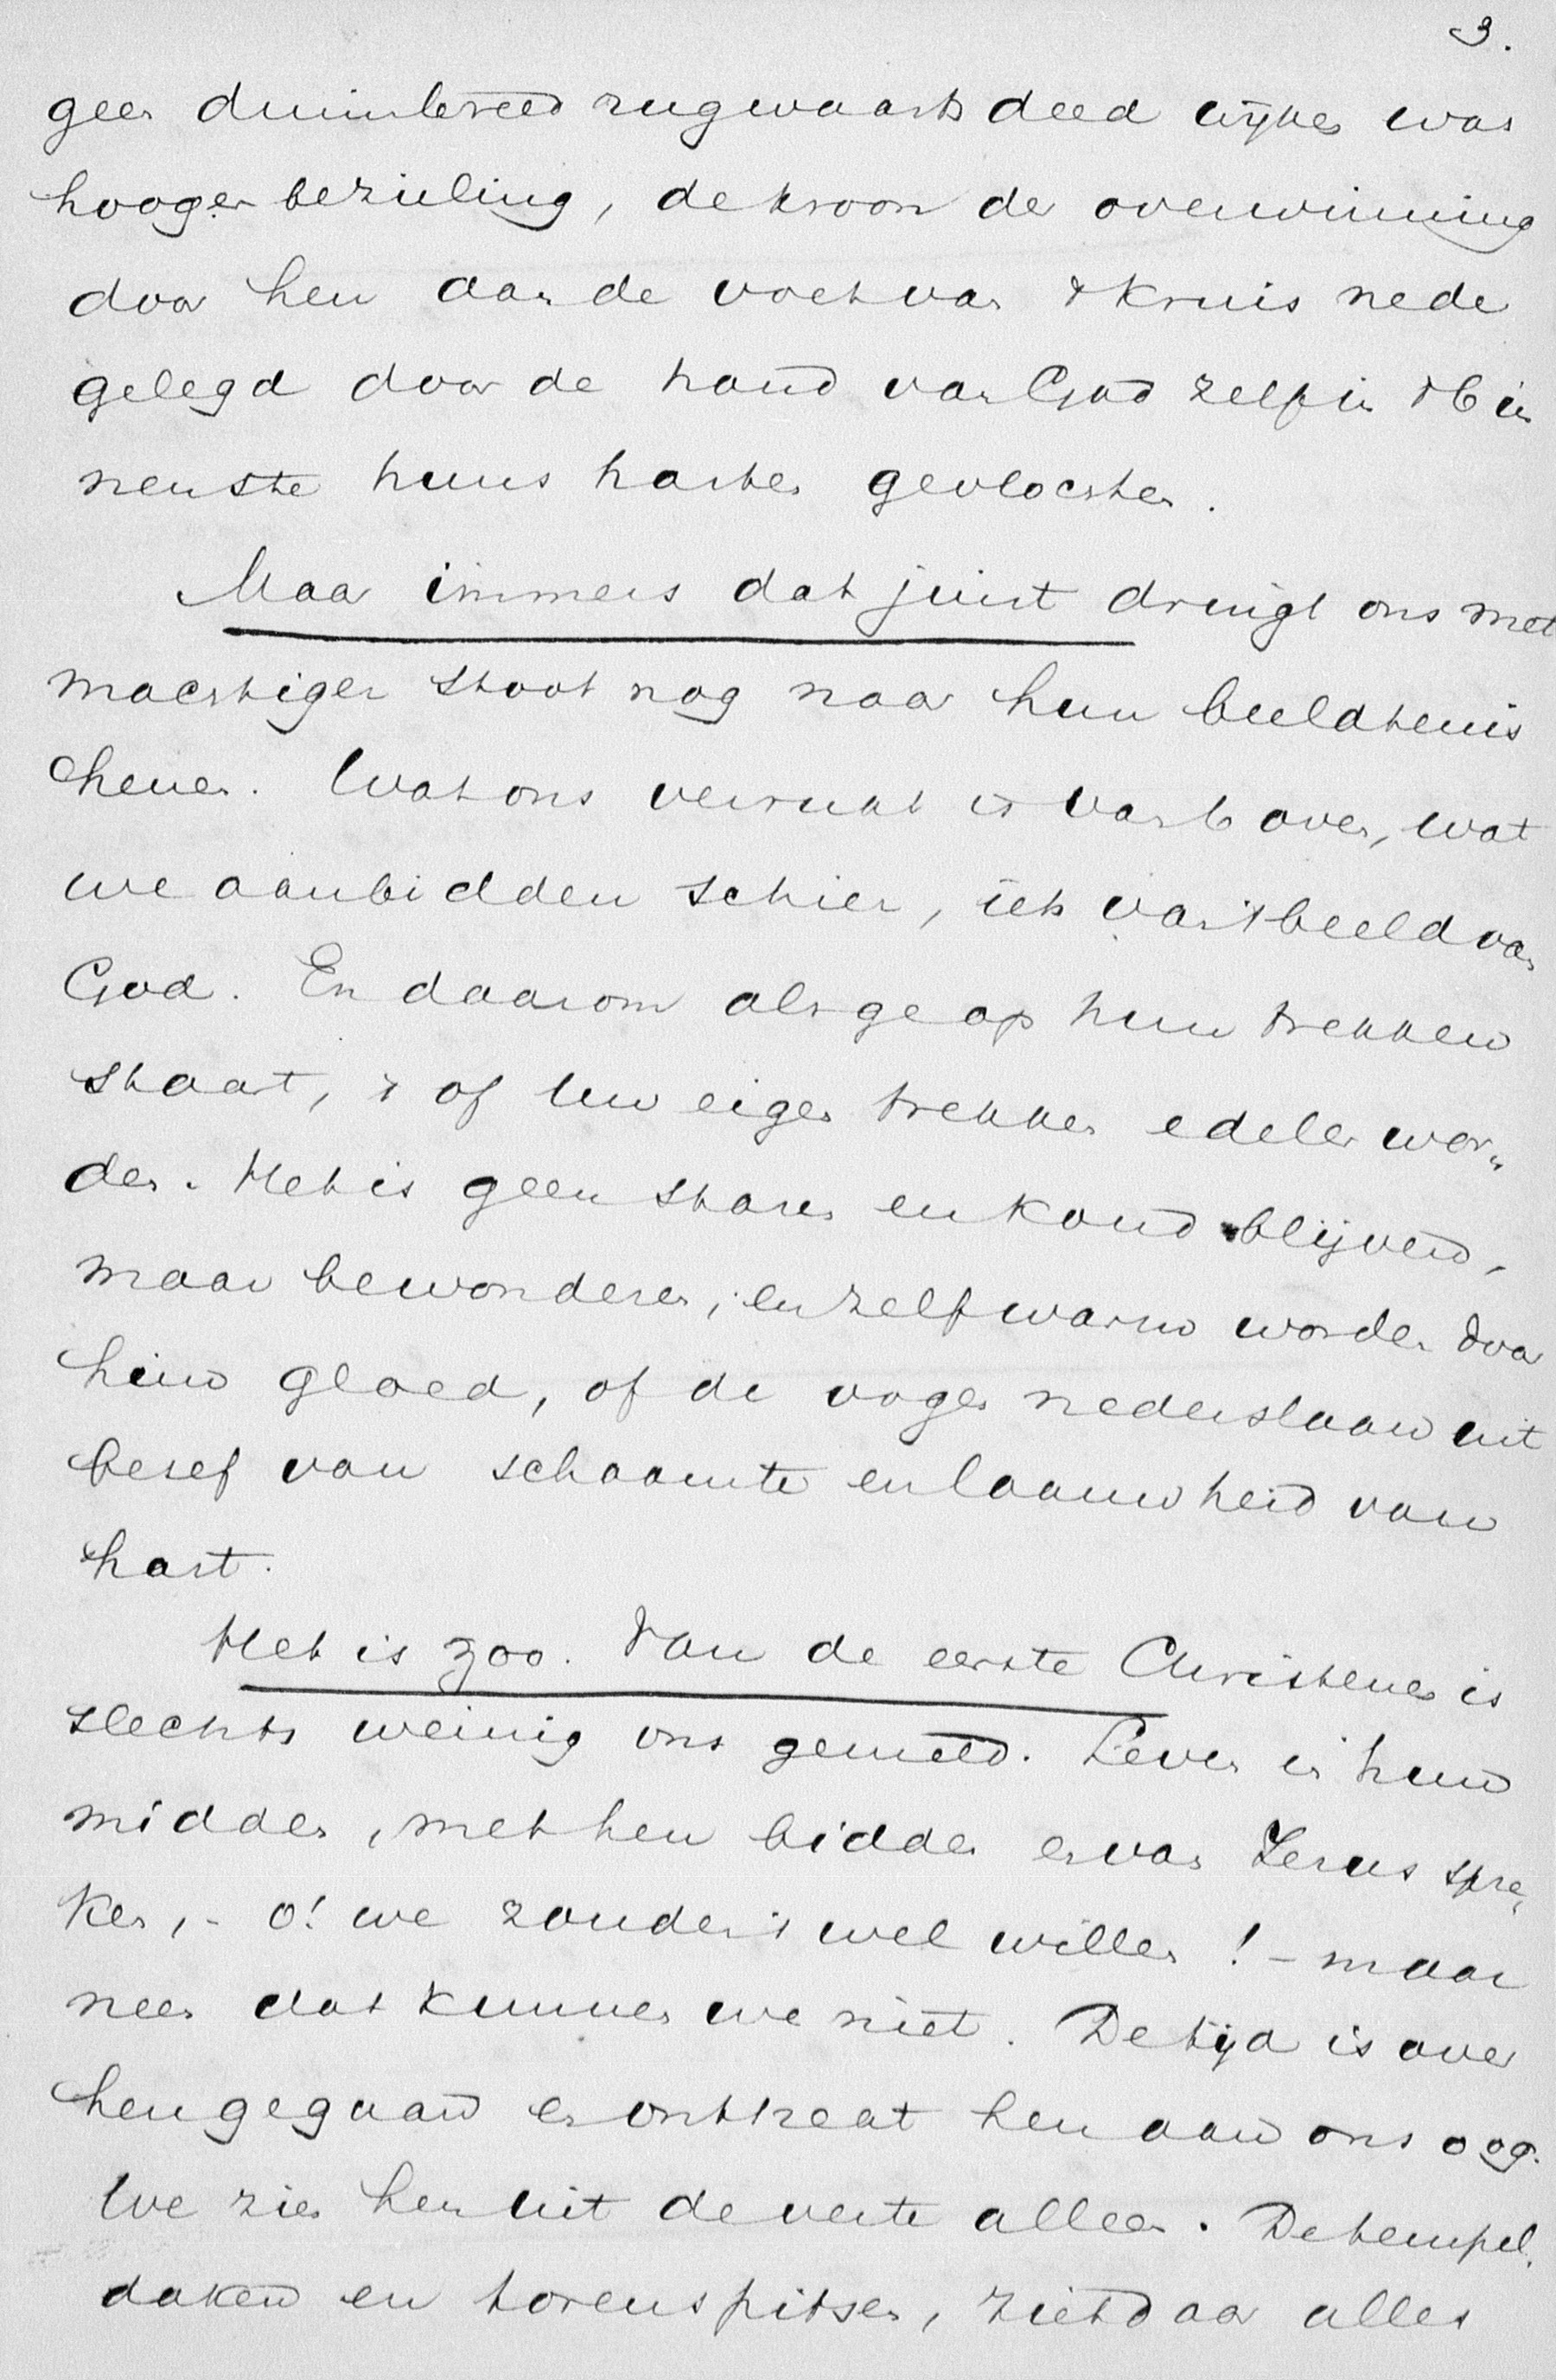 3.
geen duimbreed rugwaarts deed wijken was
hooger bezieling, de kroon der overwinning
door hen aan de voet van 't kruis neder
gelegd door de hand van God zelf in 't bin
nenste huns harten gevlochten.
Maar immers dat juist dringt ons met
machtiger stoot nog naar hun beeldtenis
henen. Wat ons verrukt is van boven, wat
we aanbidden schier, iets van 't beeld van
God. En daarom als ge op hun trekken
staart, 't of uw eigen trekken edeler wor„
den. Het is geen staren en koud blijvend,
maar bewonderen, en zelf warm worden door
hun gloed, of de oogen nederslaan uit
besef van schaamte en laauwheid van
hart.
Het is zoo. Van de eerste Christenen is
slechts weinig ons gemeld. Leven in hun
midden, met hen bidden en van Jezus spre„
ken, - o! we zouden 't wel willen! - maar
neen dat kunnen we niet. De tijd is over
hen gegaan en onttrekt hen aan ons oog.
We zien hen uit de verte alleen. De tempel„
daken en torenspitsen, ziet daar alles